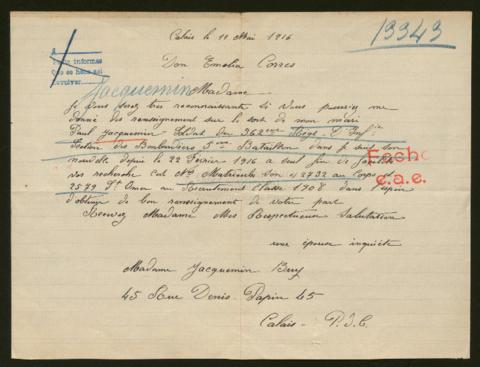 Calais le 11 Mai 1916
13343
Don Emelia Corres
Jacquemin
Madame
Je vous serez très reconnaissante si vous pouvez me
donné des renseignement sur le sort de mon mari
Paul Jacquemin Soldat du 362eme Regt d'Infie
Section des Bombardiers 5me Bataillon dans je suis sans
nouvelle depuis le 22 Février 1916 a seul fin de faciliter
vos recherche c'est No Matricule son 12732 au Corps et
2579 St Omer au Recrutement Classe 1908 dans l'espoir
d'obtenir de bon renseignement de votre part
Recevez Madame Mes Respectueuse Salutation
Fecho
e.a.e.
une épouse inquiète
Madame Jacquemin
45 Rue Denis Papin 45
Calais - P.d.C.